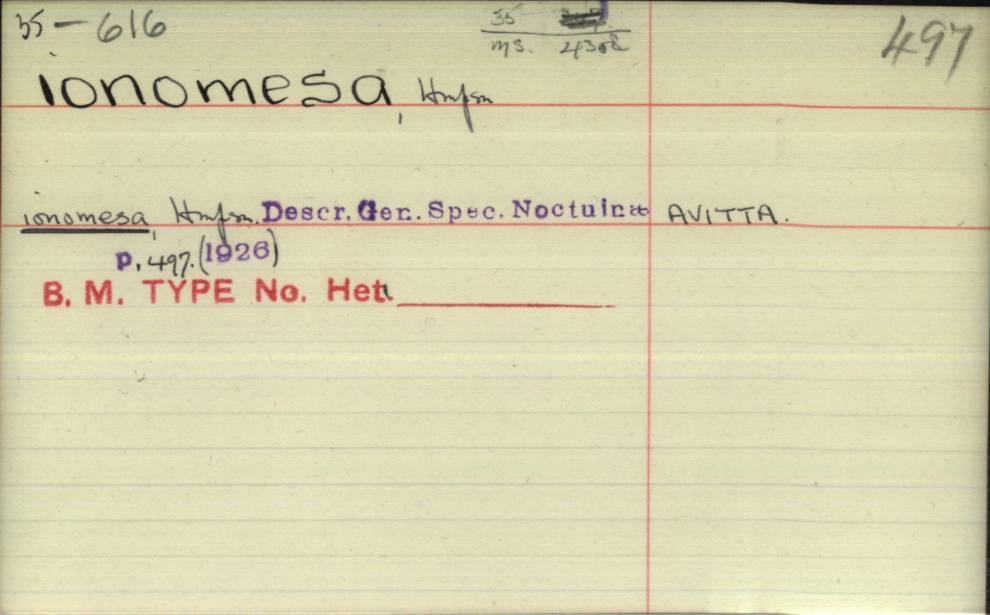 35-616
35
ms. 4308
497
ionomesa, Hmpsn
ionomesa, Hmpsn. Descr. Gen. Spec. Noctuinæ AVITTA.
p. 497. (1926)
B. M. TYPE No. Het.